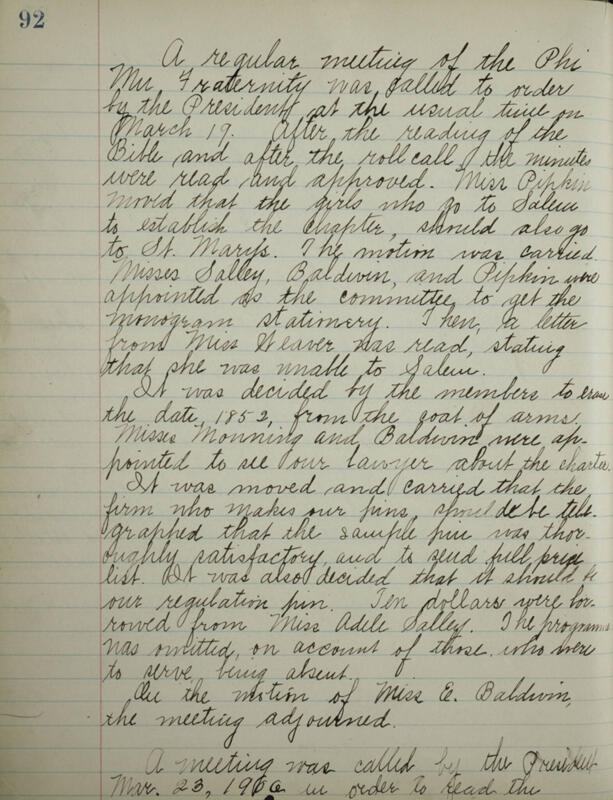 92
A regular meeting of the Phi
Mu Fraternity was called to order
by the President, at the usual time on
March 19. After, the reading of the
Bible and after the roll call the minutes
were read and approved. Miss Pipkin
moved that the girls who go to Salem
to establish the chapter, should also go
to St. Mary's. The motion was carried.
Misses Salley, Baldwin, and Pipkin were
appointed as the committee to get the
monogram stationery. Then, a letter
from Miss Weaver was read, stating
that she was unable to Salem.
It was decided by the members to erase
the date, 1852, from the coat of arms.
Misses Monning and Baldwin were ap-
pointed to see our lawyer about the charter.
It was moved and carried that the
firm who makes our pins, should be tele-
graphed that the sample pin was thor-
oughly satisfactory, and to send full price
list. It was also decided that it should be
our regulation pin. Ten dollars were bor-
rowed from Miss Adele Salley. The programme
was omitted, on account of those who were
to serve, being absent.
On the motion of Miss E. Baldwin,
the meeting adjourned.
A meeting was called by the President
Mar. 23, 1906 in order to read the